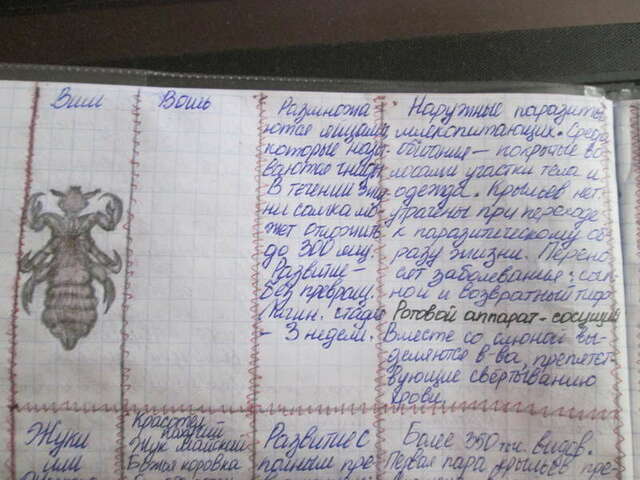 Вши
Вошь
Размножа
ются яйцами,
которые назы
ваются гниды
В течении жиз
ни самка мо-
жет отложить
до 300 яиц.
Развитие -
без превращ.
Личин. стадия
- 3 недели.
Наружные паразиты
млекопитающих. Среда
обитания - покрытые во
лосами участки тела и
одежда. Крыльев нет
утрачены при переходе
к паразитическому об
разу жизни. Перено
сят заболевания: сып
ной и возвратный тиф
Ротовой аппарат - сосущий
Вместе со слюной вы-
деляются в-ва, препятст-
вующие свёртыванию
крови.
Жуки
или
Красотел
пахучий
Жук майский
Божья коровка
Развитие с
полным пре-
Более 350 тыс. видов.
Первая пара крыльев пре-